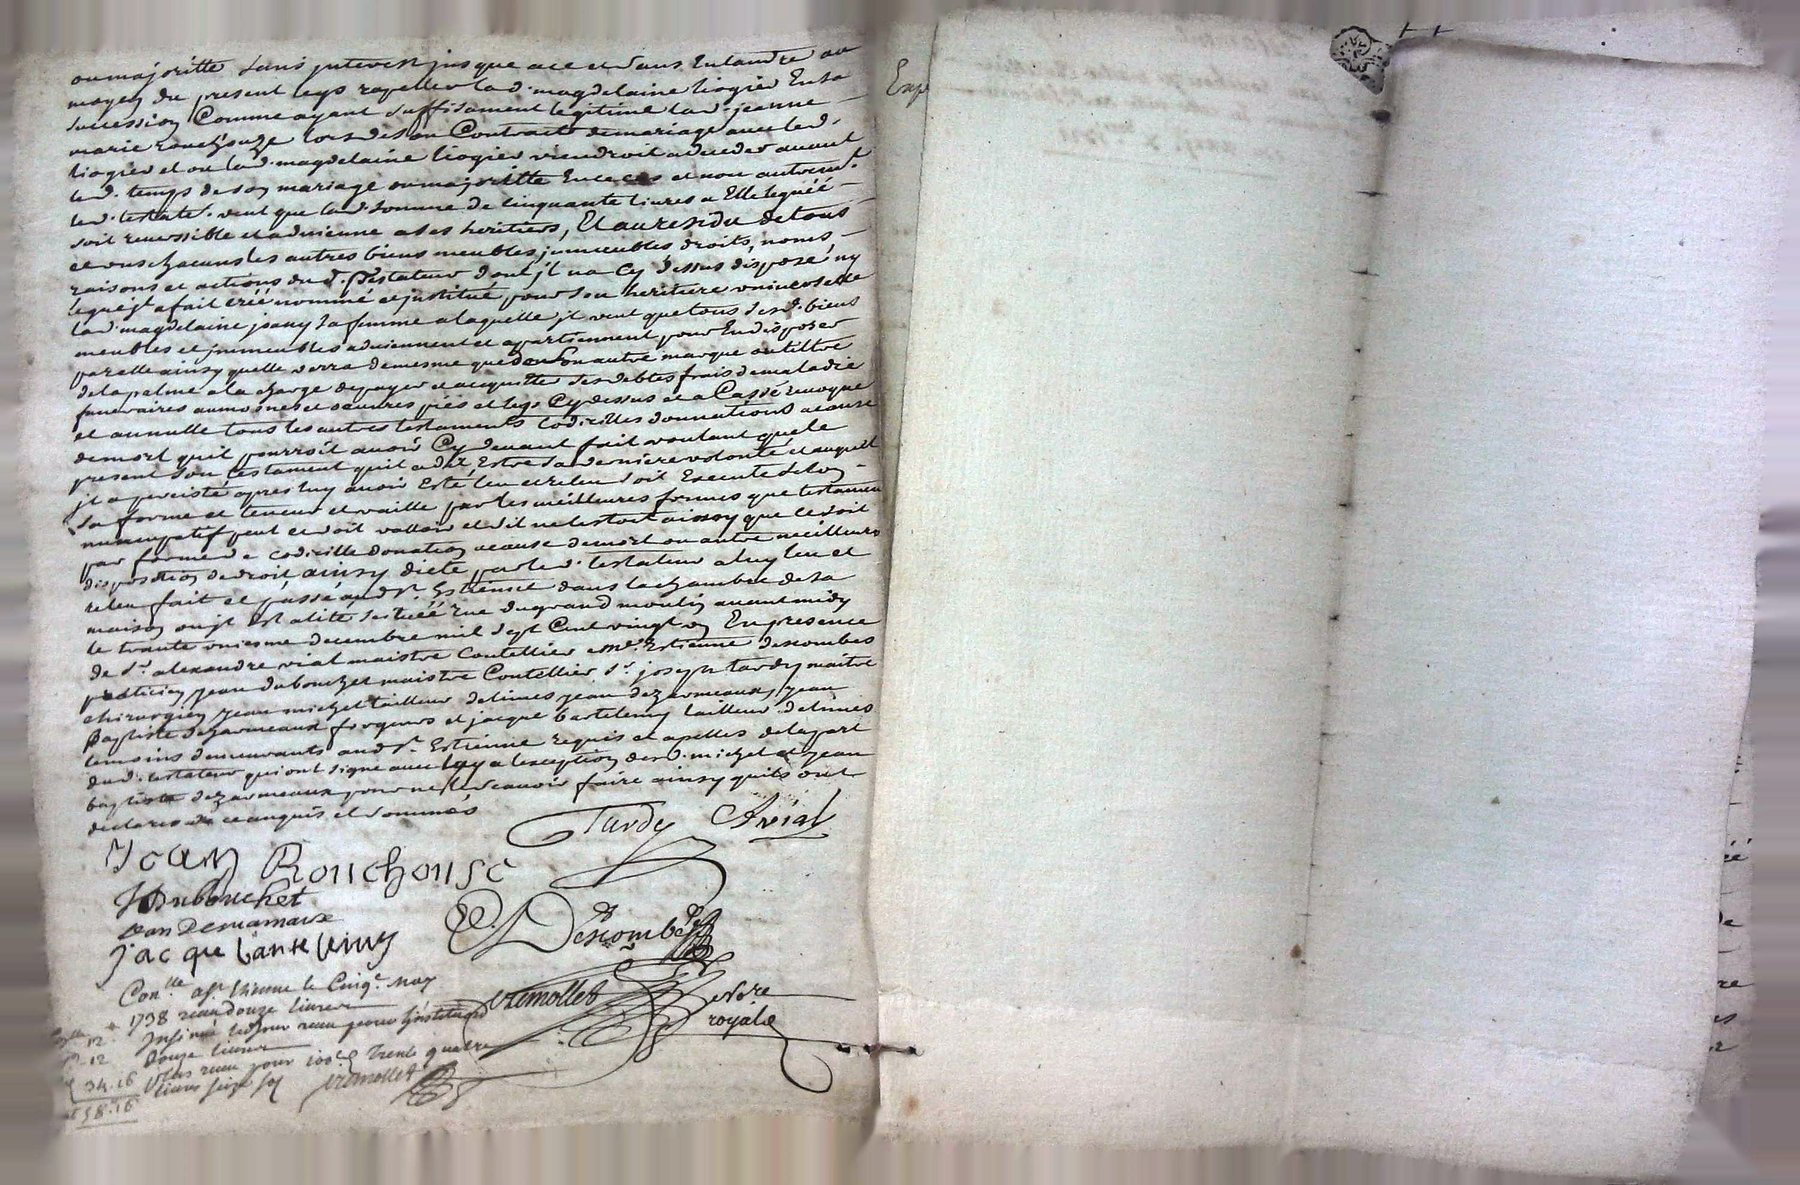 ou majoritté sans interest jusque a ce et sans Entandre au
moyen du present legs rapeller lad. magdelaine liogier En sa
succession Comme ayant suffisament legitimé lad. jeanne
marie rouchouze lors de son Contract de mariage avec led.
liogier et ou lad. magdelaine liogier viendroit a deceder avant
led. temps de son mariage ou majoritté En ce cas et non autremt.
led. testatr. veut que lad. somme de Cinquante livres a Elle leguéé
soit reversible et advienne a ses heritiers, Et au residu de tous
et uns chacuns les autres biens meubles, jmmeubles droits, noms
raisons et actions dud. testateur dont jl na Cy dessus disposé ny
legué jl a fait créé nommé et jnstitué pour son heritiere universelle
lad. magdelaine jsauy sa femme a laquelle jl veut que tous sesd. biens
meubles et jmmeubles adviennent et apartiennent pour En disposer
par elle ainsy quelle verra de mesme que d'un autre marque ou tiltre
de la palme a la charge de payer et acquitter ses debtes frais de maladie
funeraires aumosnes et oeuvres piés et legs Cy dessus et a Cassé revoqué
et annullé tous les autres testaments Codicilles donnations a cause
de mort quil pourroit avoir Cy devant fait voulant que le
present son testament quil a dit Estre sa derniere volonté et auquel
jl a percisté apres luy avoir Esté leu et releu soit Executé selon
sa forme et teneur et vaille par les meilleures formes que testament
nuncupatif peut et doit valloir et sil ne lestoit ainsy que ce soit
par forme de codicille donation a cause de mort ou autre meilleure
disposition de droit ainsy dicté par led. testateur a luy leu et
releu fait et passé aud. St. Estienne dans la chambre de sa
maison ou jl est alité scituéé rue du grand moulin avant midy
le trante uniesme decembre mil sept Cent vingt un En presence
de Sr. alexandre vial maistre Coutellier me. Estienne descombes
praticien jean dubouchet maistre Coutellier Sr. joseph tardy maitre
chirurgien jean michel tailleur de limes jean dezarmeaux, jean
Baptiste dezarmeaux forgeurs et jacque bartelemy tailleur de limes
temoins demeurants aud. St. Estienne requis et apellés de la part
dud. testateur qui ont signé avec luy a lexception desd. michel et jean
baptiste dezarmeaux pour ne scavoir faire ainsy quils ont
declaré de ce anquis et sommés
Tardy Avial
Jean Rouchouse
J Dubouchet
Jean Desarmaux
E. Descombes
jacque bartelemy
vremollet
royal
Conlle. a St. Etienne le Cinqe. may
1738 receu douze livres
Insinué led jour receu pour
douze livres
Plus receu pour 100e. Trente quatre
livres seize sols vremollet
12
12
34.16
58.16
Exp